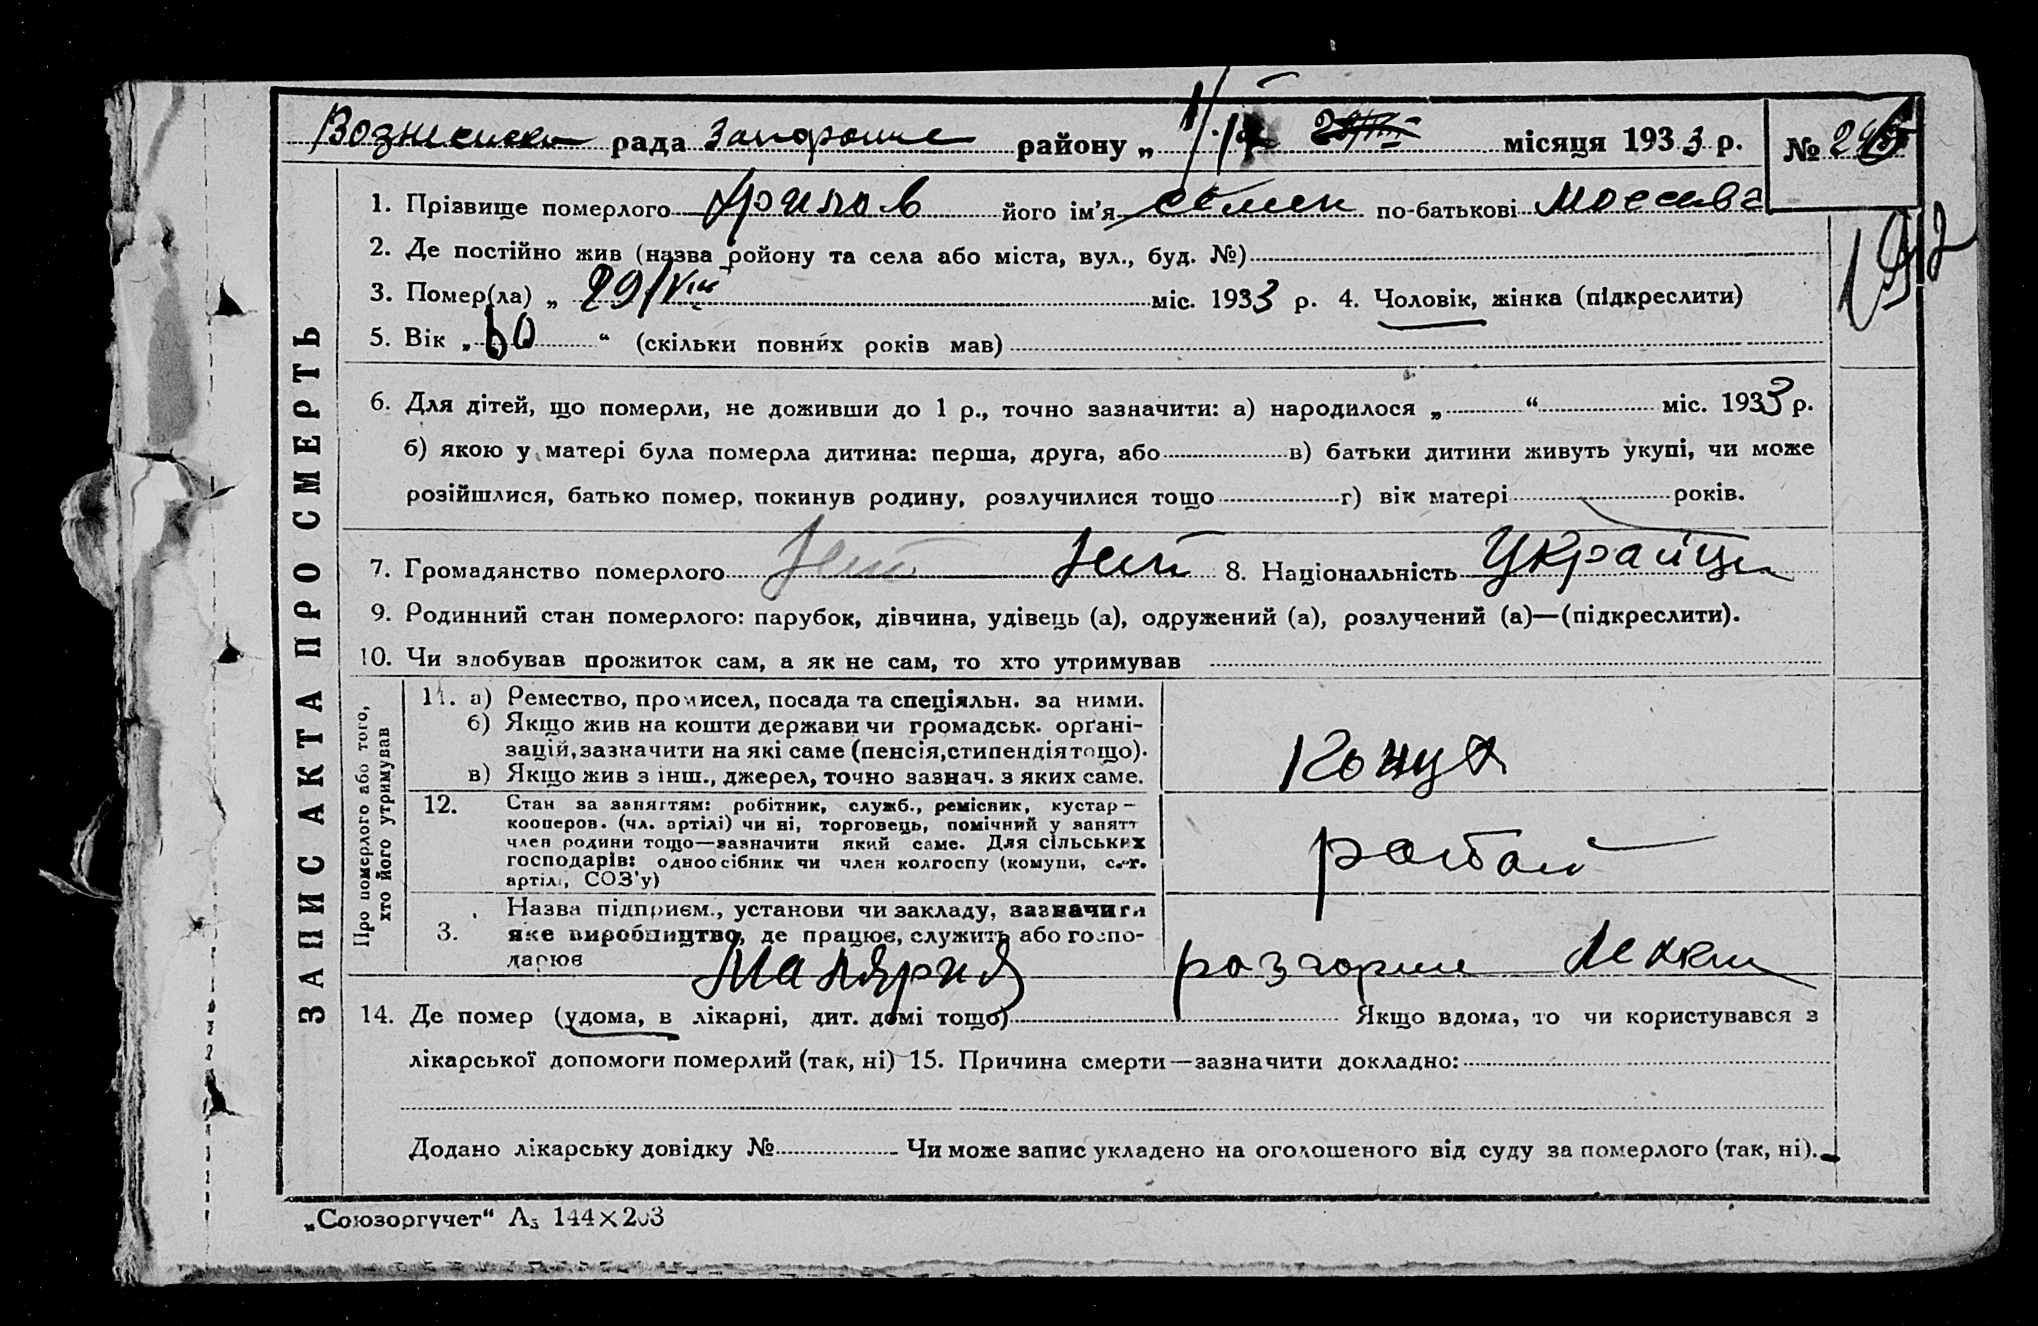 Вознесенск рада Запорізьке району „ місяця 1933 р. №
1. Прізвище померлого його ім'я Семен по-батькові
2. Де постійно жив (назва ройону та села або міста, вул., буд. №)
3. Помер(ла) „ 29/VIII міс. 1933 р. 4. Чоловік, жінка (підкреслити)
5. Вік „60“ (скільки повних років мав)
6. Для дітей, що померли, не доживши до 1 р., точно зазначити: а) народилося „ “ міс. 1933 р.
б) якою у матері була померла дитина: перша, друга, або в) батьки дитини живуть укупі, чи може
розійшлися, батько помер, покинув родину, розлучилися тощо г) вік матері років.
7. Громадянство померлого 8. Національність Украйнц
9. Родинний стан померлого: парубок, дівчина, удівець (а), одружений (а), розлучений (а)—(підкреслити).
10. Чи здобував прожиток сам, а як не сам, то хто утримував
ЗАПИС АКТА ПРО СМЕРТЬ
Про померлого або того,
хто його утримував
11. а) Ремество, промисел, посада та спеціяльн. за ними.
б) Якщо жив на кошти держави чи громадськ. орґані-
зацій, зазначити на які саме (пенсія, стипендія тощо).
в) Якщо жив з інш., джерел, точно зазнач. з яких саме.
12. Стан за заняттям: робітник, служб., ремісник, кустар—
кооперов. (чл. артілі) чи ні, торговець, помічний у занятт
член родини тощо—зазначити який саме. Для сільських
господарів: одноосібник чи член колгоспу (комуни, с.-г.
артілі, СОЗ'у)
Назва підприєм., установи чи закладу, зазначити
3. яке виробництво, де працює, служить або госпо-
дарює
Малярия
14. Де помер (удома, в лікарні, дит. домі тощо) Якщо вдома, то чи користувався з
лікарської допомоги померлий (так, ні) 15. Причина смерти—зазначити докладно:
Додано лікарську довідку № Чи може запис укладено на оголошеного від суду за померлого (так, ні).
„Союзоргучет“ А₅ 144×203